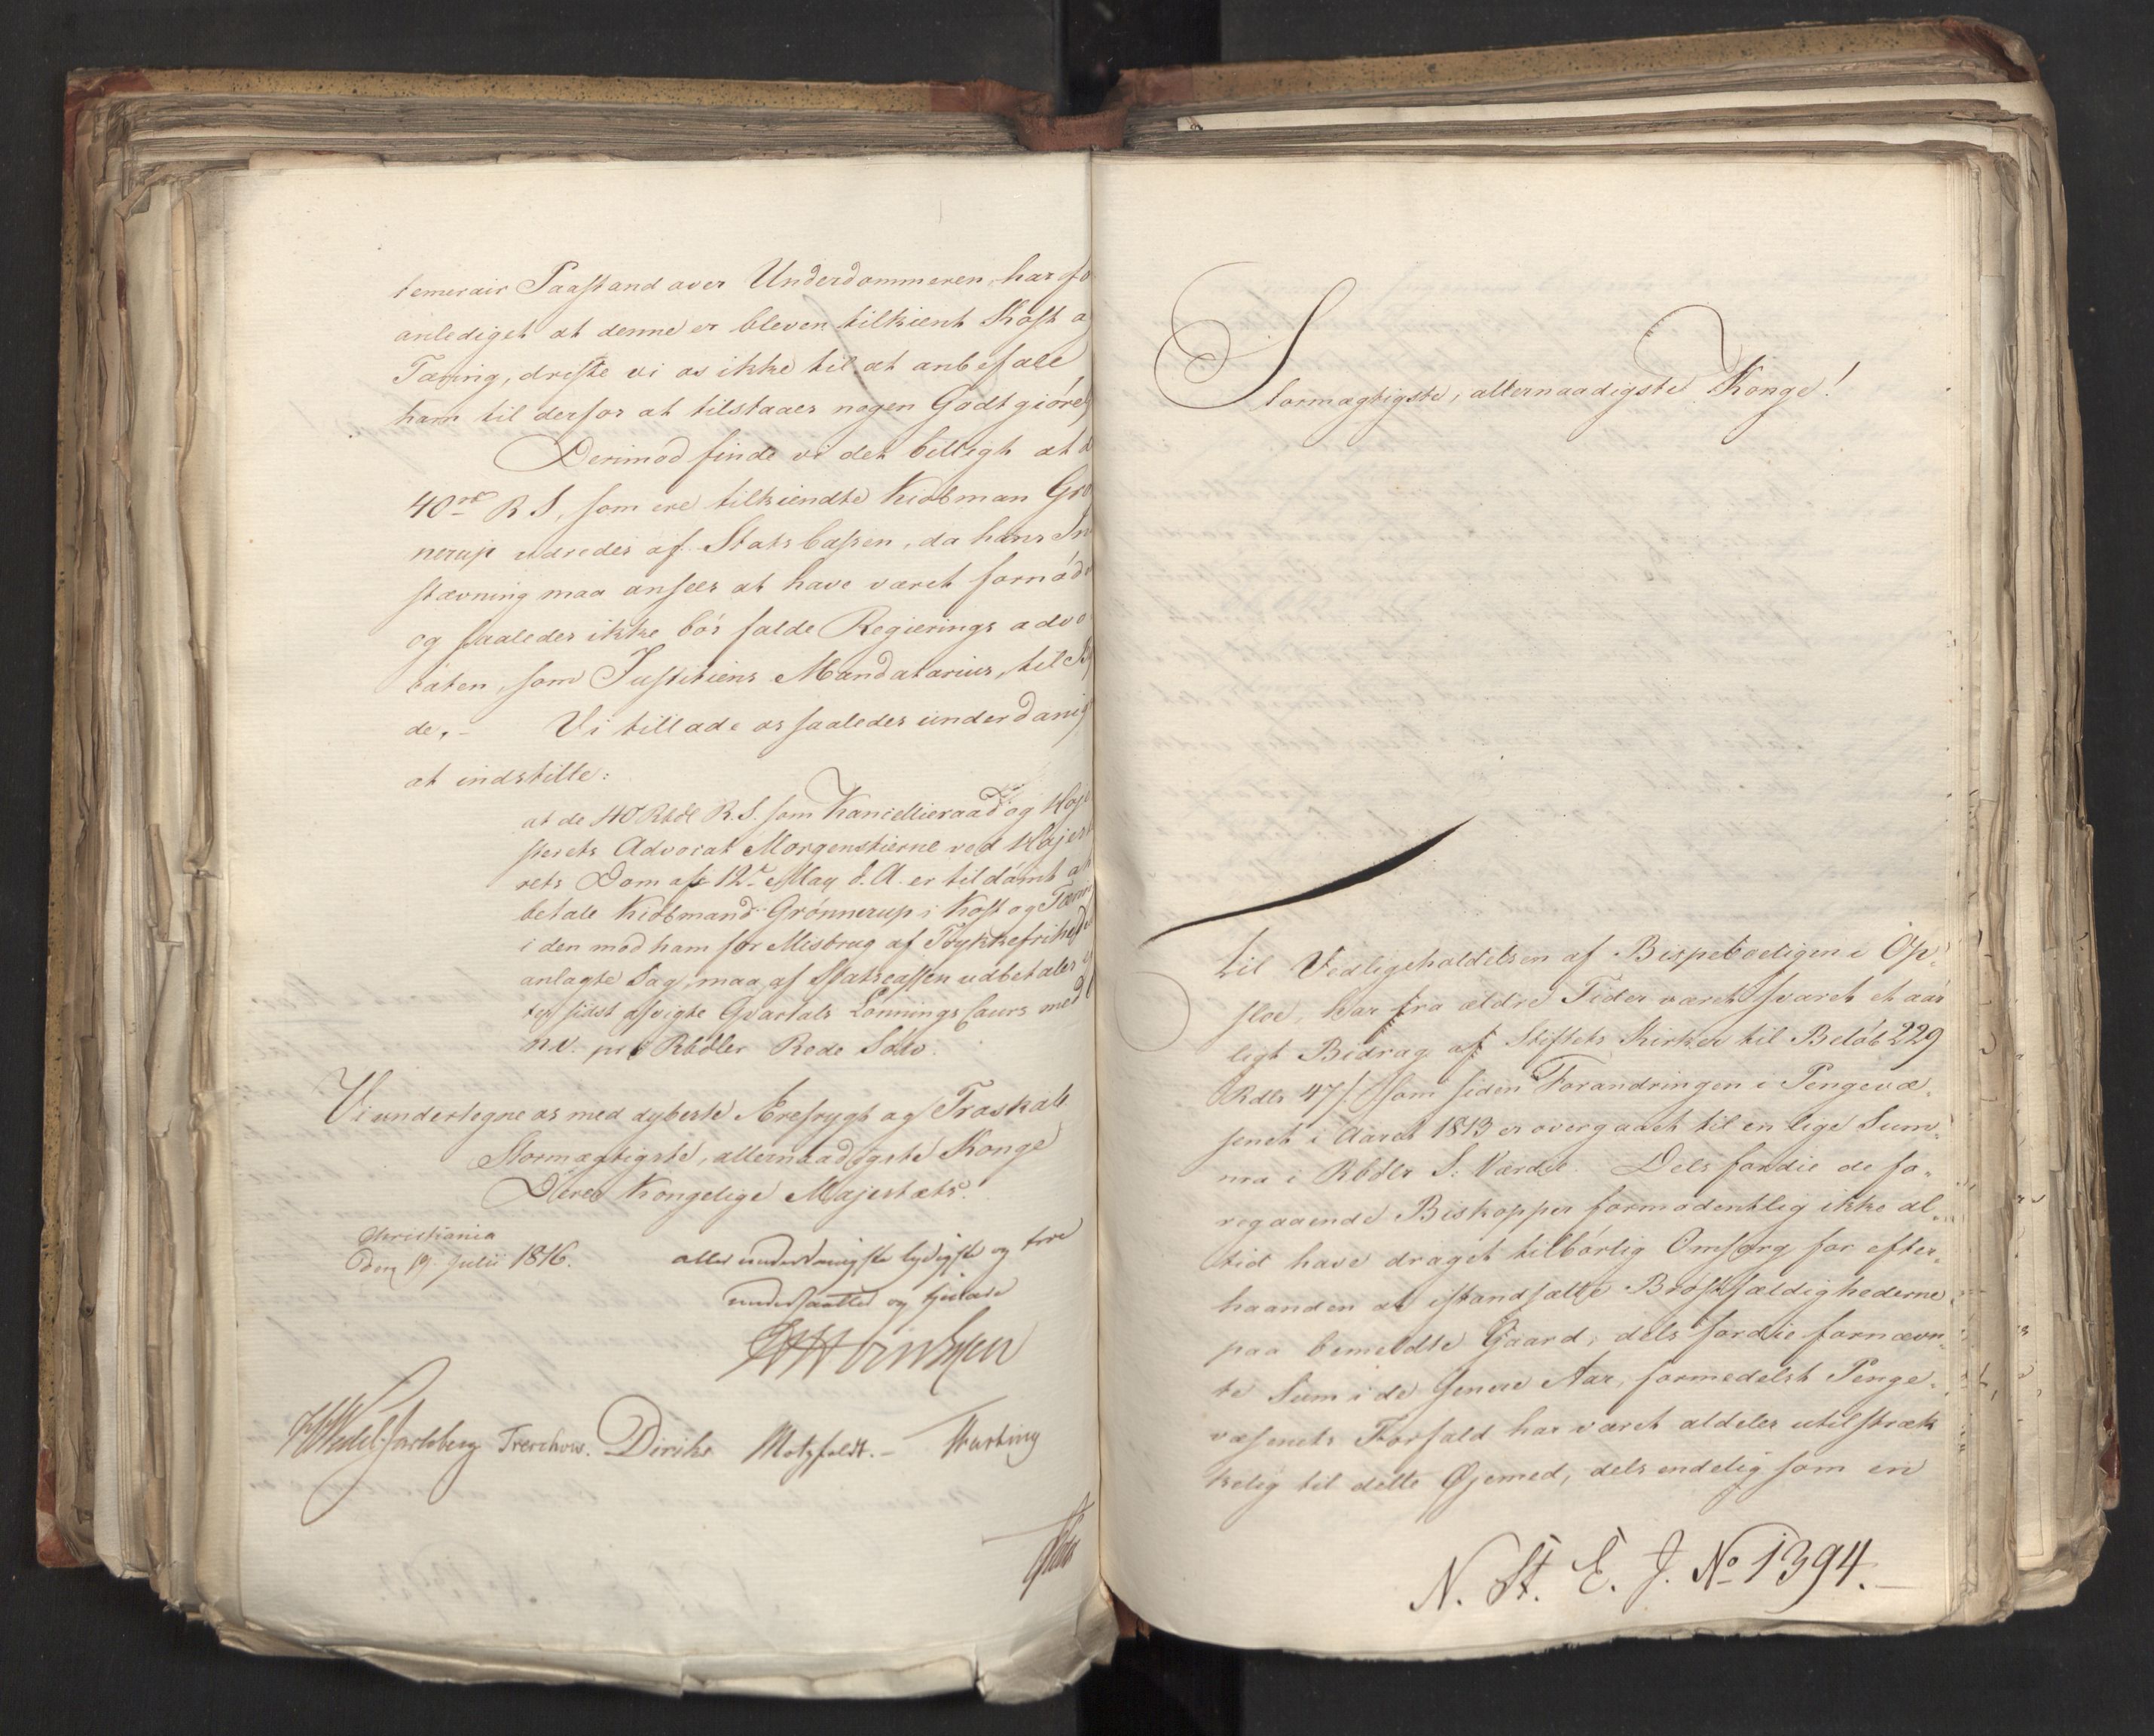 temerair Paastand over Underdommeren, har fo
anlediget at denne er bleven tilkient Kost o
Tæring, driste vi os ikke til at anbefale
ham til derfor at tilstaaes nogen Godtgiörels
Derimod finde vi det billigt at d
40rd R S, som ere tilkiendte Kiöbman Grö
nerup udredes af Statskassen, da hans In
stævning maa ansees at have været fornöde
og saaledes ikke bör falde Regierings advo
caten, som Justitiens Mandatarius, til By
de. - Vi tillade os saaledes underdanig
at indstille:
at de 40 Rbdl R.S. som Kancellieraad og Høje
sterets Advocat Morgenstierne ved Højeste
rets Dom af 12te May d. A. er tildömt at
betale Kiöbmand Grönnerup i Kost og Tæring
i den mod ham for Misbrug af Trykkefrihede
anlagte Sag, maa af Statscassen udbetales ef
ter sidst afvigte Qvartals Lönnings Cours med
N.V. pro Rbdler Rede Sölv.
Vi undertegne os med dybeste Ærefrygt og Troskab
Stormægtigste, allernaadigste Konge
Deres Kongelige Majestæts
Christiania
den 19 Julii 1816.
allerunderdanigste lydigste og troe
undersaatter og tjenere
HWedel Jarlsberg Treschow. Diriks Motzfeldt. -
Stormægtigste, allernaadigste Konge!
Til Vedligeholdelsen af Bispeboeligen i Op,
sloe, har fra ældre Tider været svaret et aar
ligt Bidrag af Stiftets Kirker til Beløb 229
Rdlr 47 s. som siden Forandringen i Pengevæ,
senet i Aaret 1813 er overgaaet til en lige Sum,
ma i Rbdlr S: Værdie. Dels fordie de fo,
regaaende Biskopper formodentlig ikke al,
tid have draget tilbörlig Omsorg for efter,
haanden at istandsætte Bröstfældighederne
paa bemeldte Gaard, dels fordie fornævn,
te Sum i de senere Aar, formedelst Penge,
væsenets Forfald har været aldeles utilstræk
kelig til dette Øjemed, dels endelig som en
N. St. E. J. No 1394. -